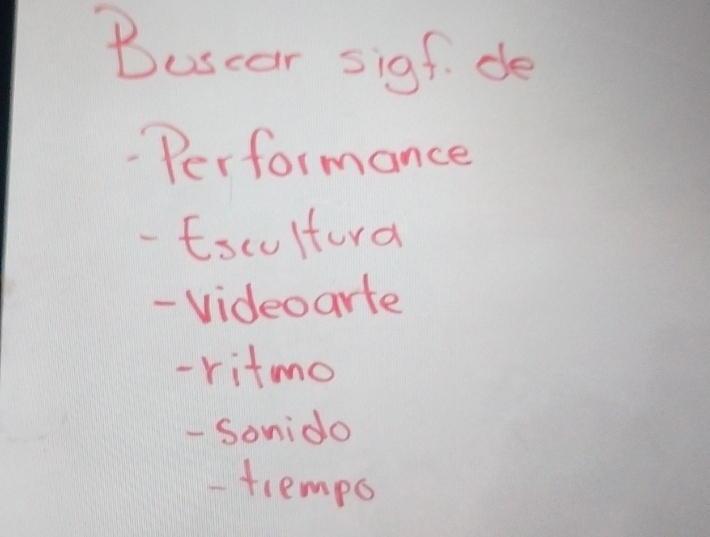 Buscar sigf. de
- Performance
- Escultura
- Videoarte
- ritmo
- sonido
- tiempo